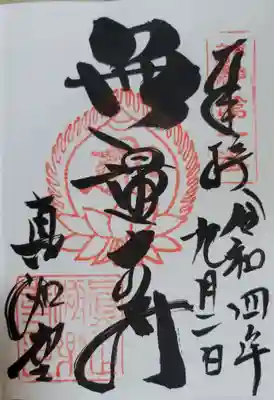 奉拝
令和四年
九月二日
無量寿
真如堂